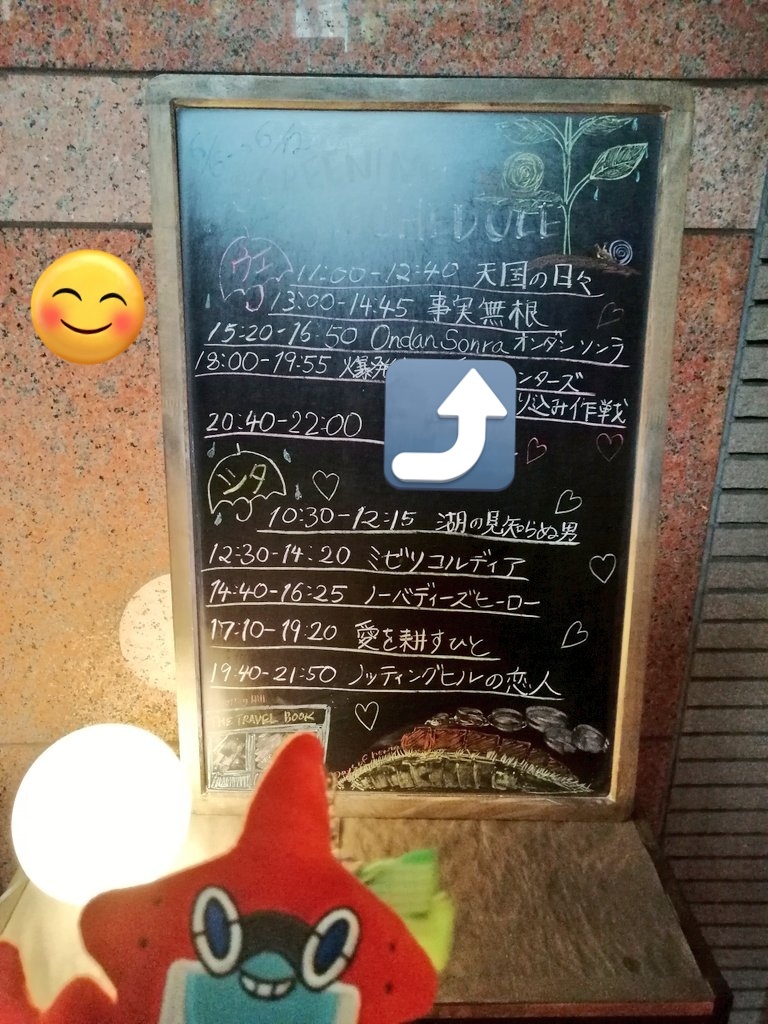 6/6-6/12
SCHEDULE
ウエ
11:00-12:40 天国の日々
13:00-14:45 事実無根
15:20-16:50 Ondan Sonra オンダンソンラ
18:00-19:55 爆発 ンターズ
り込み作戦
20:40-22:00
シタ
10:30-12:15 湖の見知らぬ男
12:30-14:20 ミゼリコルディア
14:40-16:25 ノーバディーズヒーロー
17:10-19:20 愛を耕すひと
19:40-21:50 ノッティングヒルの恋人
THE TRAVEL BOOK